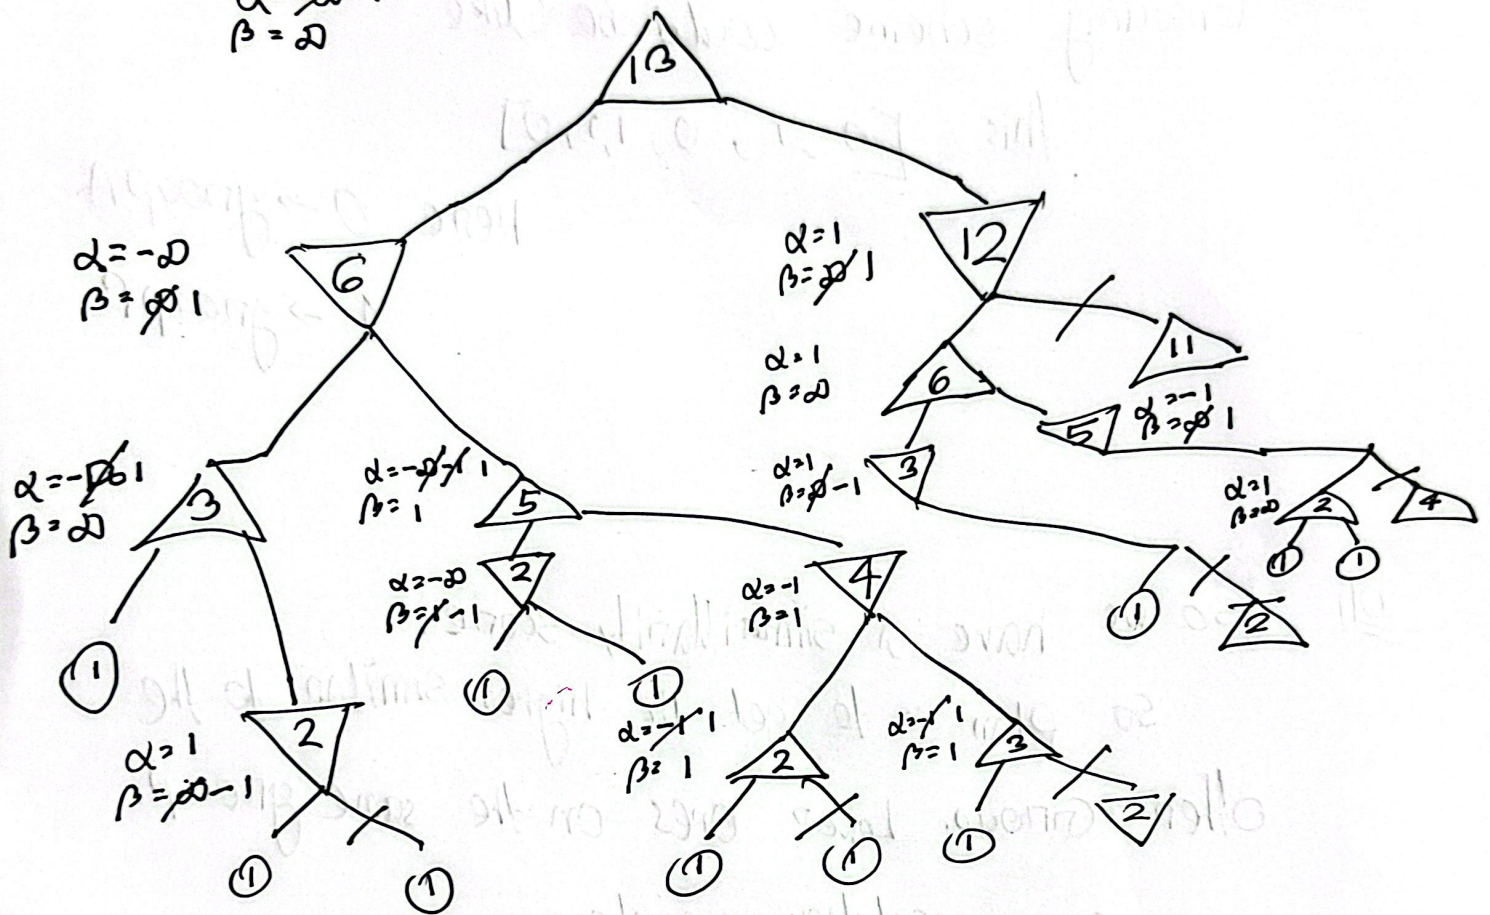 β = ∞
13
α = -∞
β = ∞ 1
6
α = 1
β = ∞ 1
12
11
α = 1
β = ∞
6
α = -1
β = ∞ 1
5
α = -∞ 1
β = ∞
3
α = -∞ -1 1
β = 1
5
α = 1
β = ∞ -1
3
α = 1
β = ∞
2
4
1
1
α = -∞
β = 1 -1
2
α = -1
β = 1
4
1
2
1
1
1
α = 1
β = ∞ -1
2
α = -1 1
β = 1
2
α = -1 1
β = 1
3
2
1
1
1
1
1